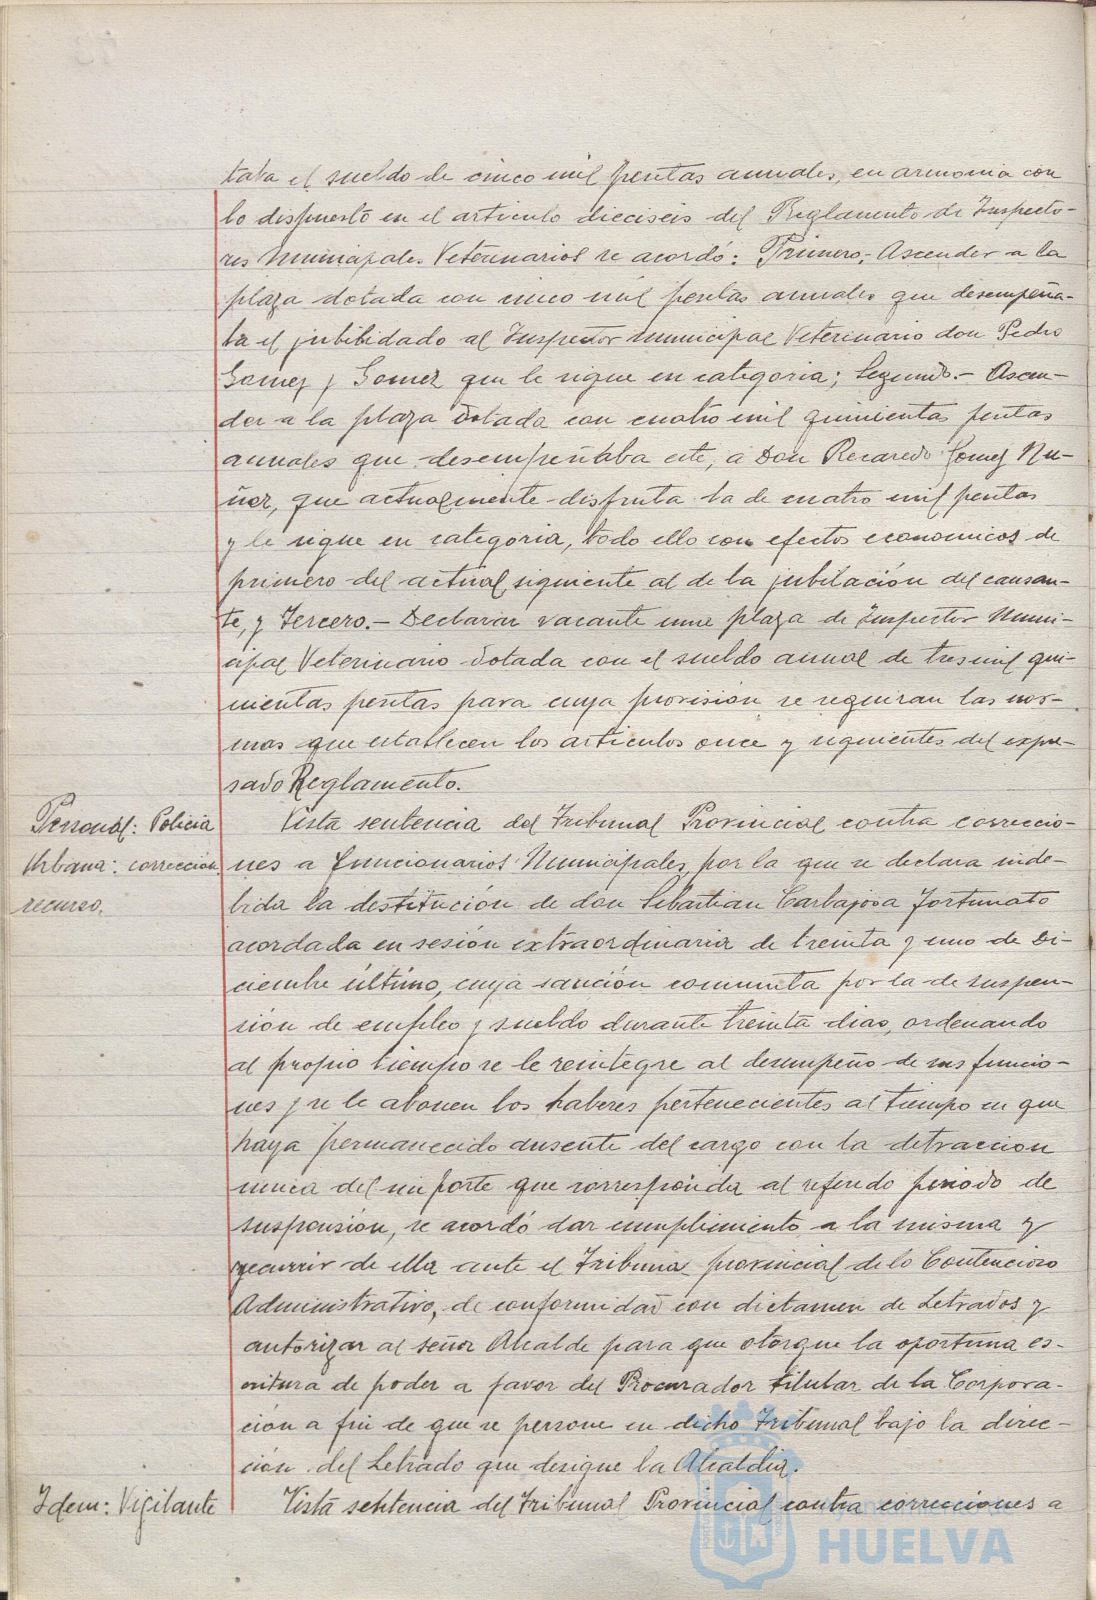 taba el sueldo de cinco mil pesetas anuales, en armonia con
lo dispuesto en el articulo dieciseis del Reglamento de Inspecto-
res Municipales Veterinarios se acordó: Primero.- Ascender a la
plaza dotada con cinco mil pesetas anuales que desempeña-
ba el jubilidado al Inspector Municipal Veterinario don Pedro
Gomez y Gomez que le sigue en categoria; Segundo.- Ascen-
der a la plaza dotada con cuatro mil quinientas pesetas
anuales que desempeñaba este, a Don Recaredo Gomez Nu-
ñez, que actualmente disfruta la de cuatro mil pesetas
y le sigue en categoria, todo ello con efectos economicos de
primero del actual, siguiente al de la jubilación del causan-
te, y Tercero.- Declarar vacante una plaza de Inspector Muni-
cipal Veterinario dotada con el sueldo anual de tres mil qui-
nientas pesetas para cuya provisión se seguiran las nor-
mas que establecen los articulos once y siguientes del expre-
sado Reglamento.
Personal: Policia
Urbana: corrección
recurso.
Vista sentencia del Tribunal Provincial contra correccio-
nes a funcionarios Municipales, por la que se declara inde-
bida la destitución de don Sebastian Carbajosa Fortunato
acordada en sesión extraordinaria de treinta y uno de Di-
ciembre último, cuya sanción conmuta por la de suspen-
sión de empleo y sueldo durante treinta dias, ordenando
al propio tiempo se le reintegre al desempeño de sus funcio-
nes y se le abonen los haberes pertenecientes al tiempo en que
haya permanecido ausente del cargo con la detraccion
unica del importe que corresponda al referido periodo de
suspensión, se acordó dar cumplimiento a la misma y
recurrir de ella ante el Tribunal provincial de lo Contencioso
Administrativo, de conformidad con dictamen de Letrados y
autorizar al señor Alcalde para que otorgue la oportuna es-
critura de poder a favor del Procurador titular de la Corpora-
ción a fin de que se persone en dicho Tribunal bajo la direc-
ción del Letrado que designe la Alcaldia.
Idem: Vigilante
Vista sentencia del Tribunal Provincial contra correcciones a
Ayuntamiento de
HUELVA